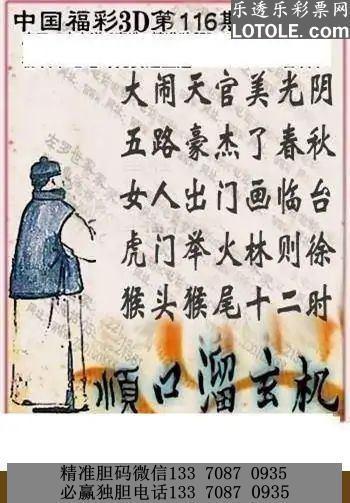 中国福彩3D第116期
乐透乐彩票网
LOTOLE.COM
大闹天官美光阴
五路豪杰了春秋
女人出门画临台
虎门举火林则徐
猴头猴尾十二时
顺口溜玄机
精准胆码微信133 7087 0935
必赢独胆电话133 7087 0935